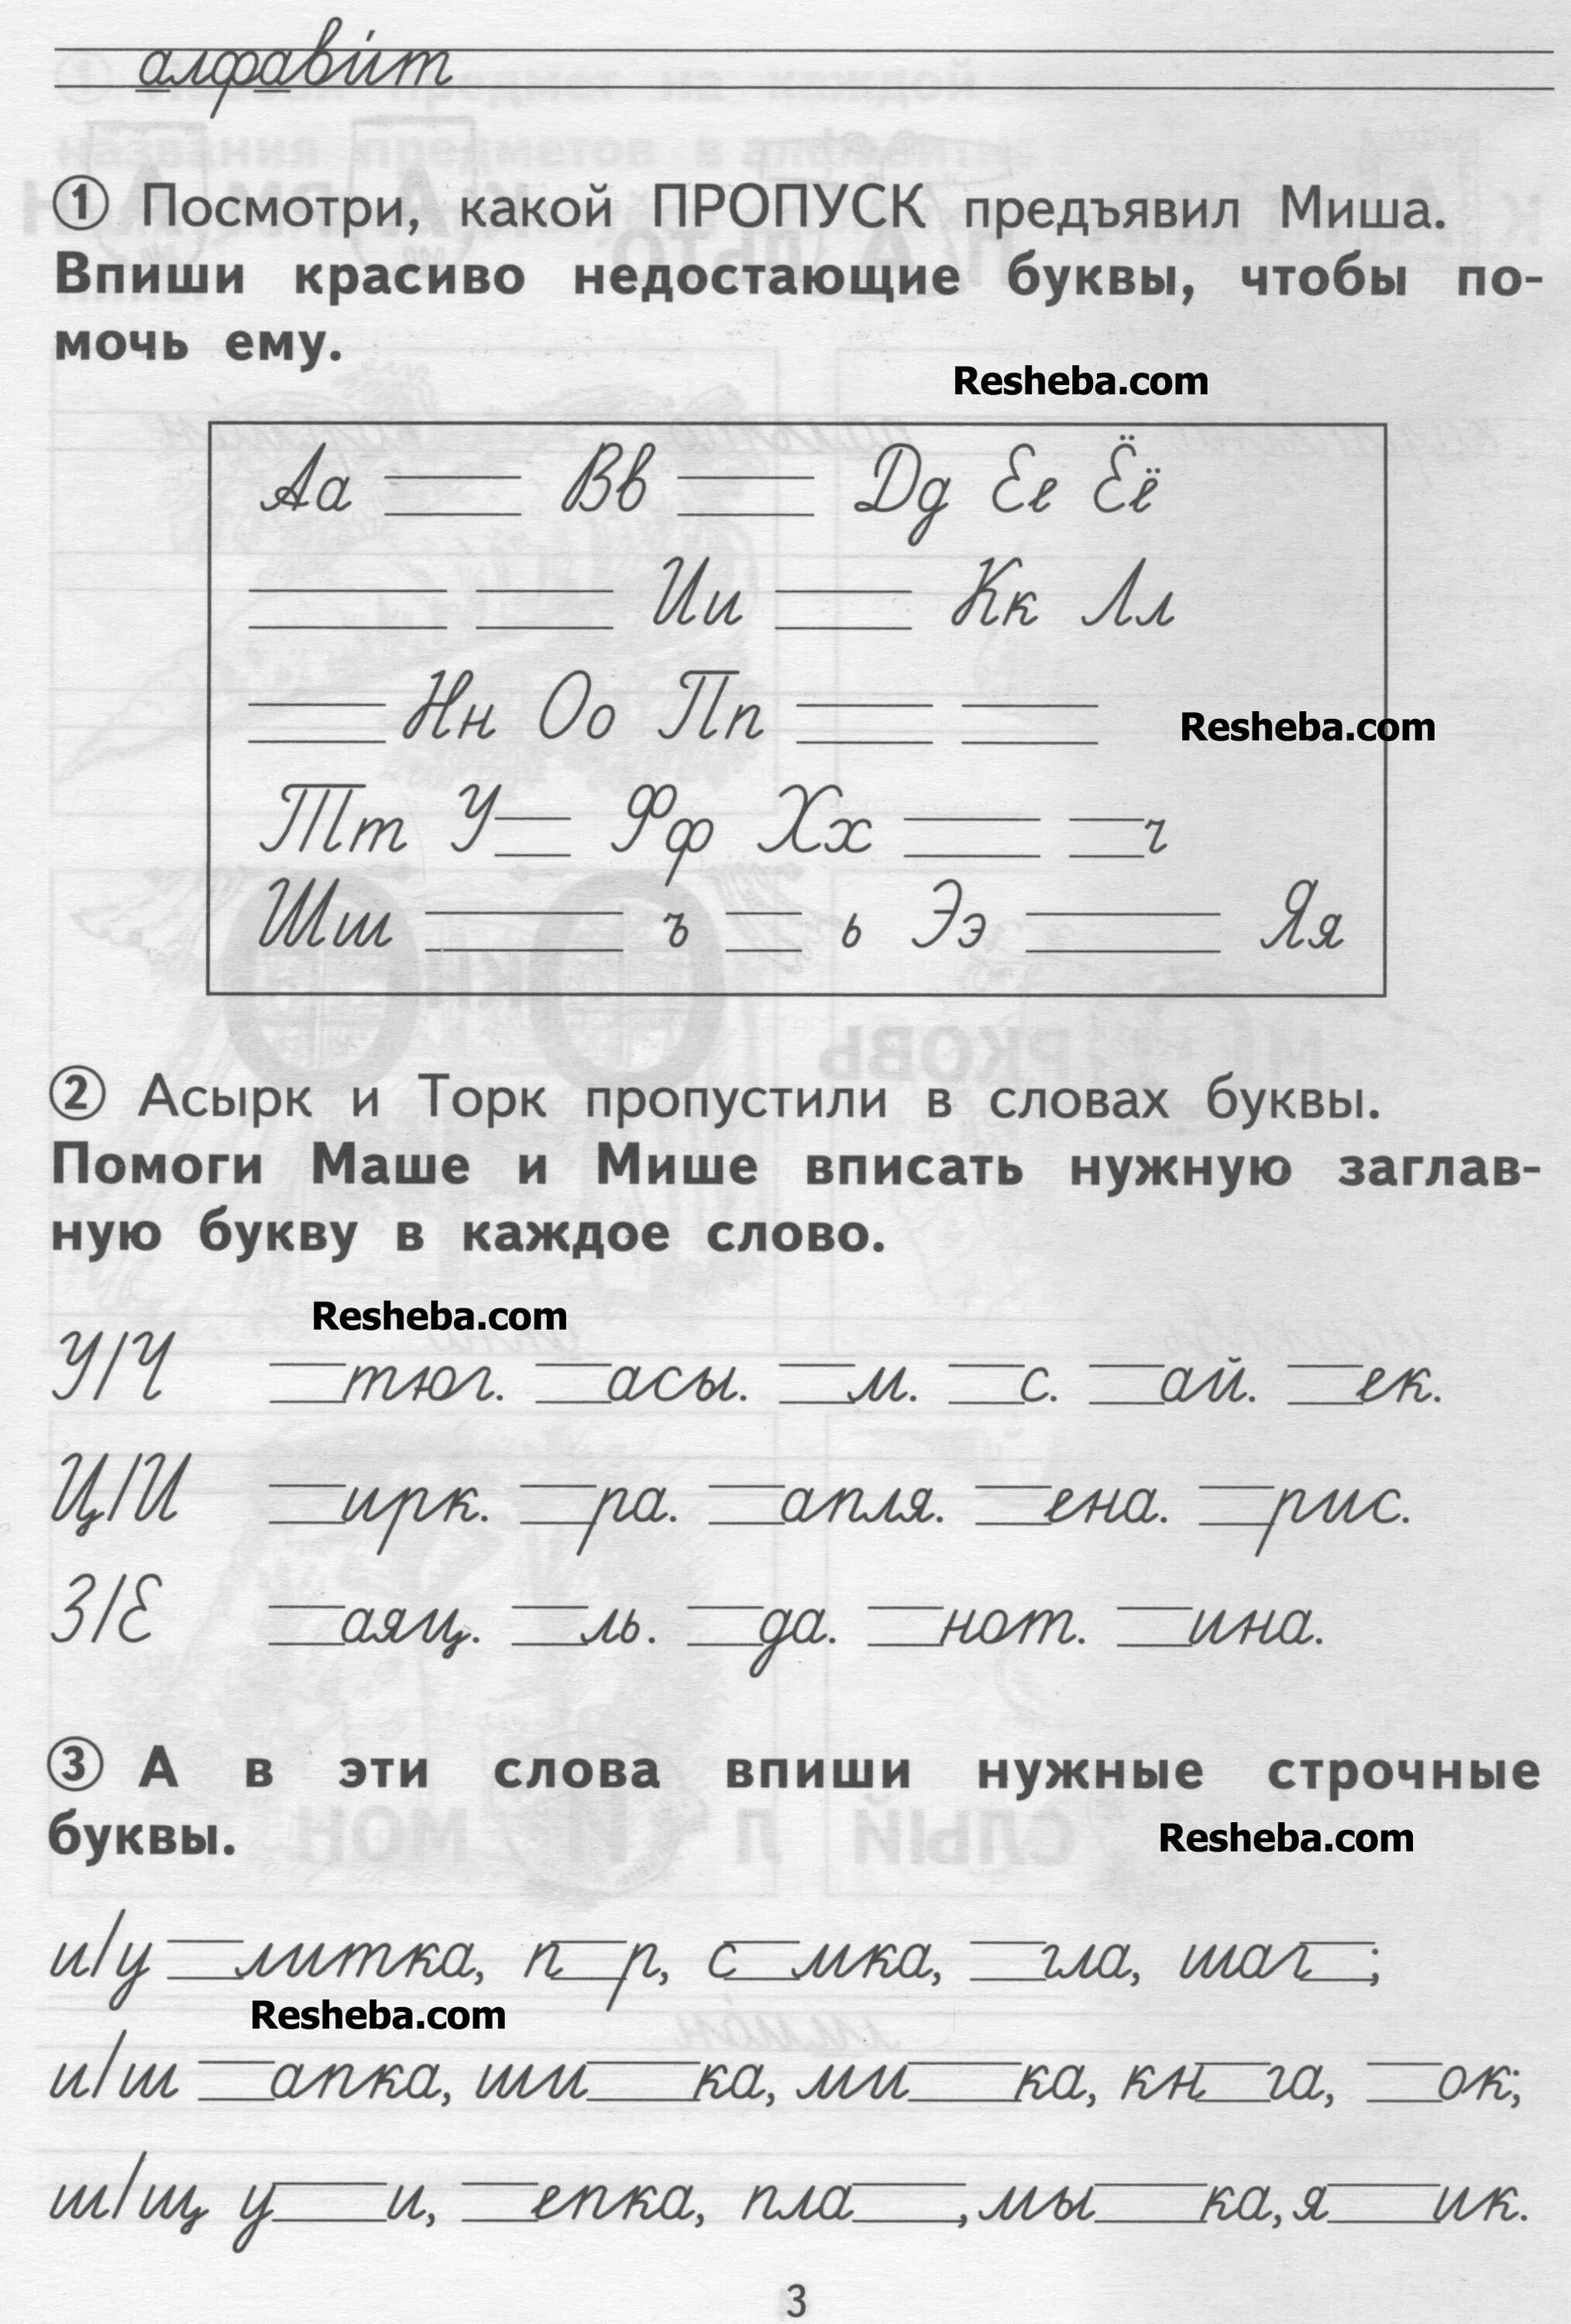 алфави́т
① Посмотри, какой ПРОПУСК предъявил Миша.
Впиши красиво недостающие буквы, чтобы по-
мочь ему.
Resheba.com
Аа ____ Вв ____ Дд Ее Ёё
____ ____ Ии ____ Кк Лл
____ Нн Оо Пп ____ ____
Resheba.com
Тт У__ Фф Хх ____ __ч
Шш ____ ъ __ ь Ээ ____ Яя
② Асырк и Торк пропустили в словах буквы.
Помоги Маше и Мише вписать нужную заглав-
ную букву в каждое слово.
Resheba.com
У/Ч __тюг. __асы. __м. __с. __ай. __ек.
Ц/И __ирк. __ра. __апля. __ена. __рис.
З/Е __аяц. __ль. __да. __нот. __ина.
③ А в эти слова впиши нужные строчные
буквы.
Resheba.com
и/у __литка, п__р, с__мка, __гла, шаг__;
Resheba.com
и/ш __апка, ши__ка, ми__ка, кн__га, __ок;
ш/щ у__и, __епка, пла__, мы__ка, я__ик.
3